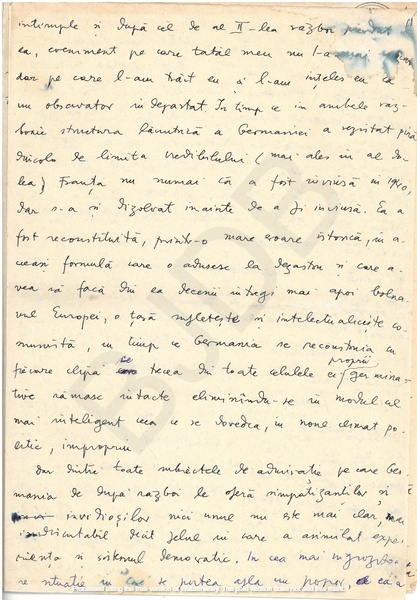 întîmple și după cel de al II-lea război pierdut de
ea, eveniment pe care tatăl meu nu l-a mai
dar pe care l-am trăit eu și l-am înțeles eu ca
un observator îndepărtat. În timp ce în ambele răz-
boaie structura lăuntrică a Germaniei a rezistat pînă
dincolo de limita credibilului (mai ales în al do-
lea) Franța nu numai că a fost învinsă în 1940,
dar s-a și dizolvat înainte de a fi învinsă. Ea a
fost reconstituită, printr-o mare eroare istorică, în a-
ceeași formulă care o adusese la dezastru și care a-
vea să facă din ea decenii întregi mai apoi bolna-
vul Europei, o țară sufletește și intelectualicește co-
munistă, în timp ce Germania se reconstruia cu
fiecare clipă ce trecea din toate celulele ei proprii germina-
tive rămase intacte eliminîndu-se în modul cel
mai inteligent ceea ce se dovedea, în noul climat po-
litic, impropriu.
Dar dintre toate subiectele de admirație pe care Ger-
mania de după război le oferă simpatizanților și
invidioșilor nici unul nu este mai clar, mai
indiscutabil decît felul în care a asimilat expe-
riența și sistemul democratic. În cea mai îngrozitoa-
re situație în care se putea afla un popor,